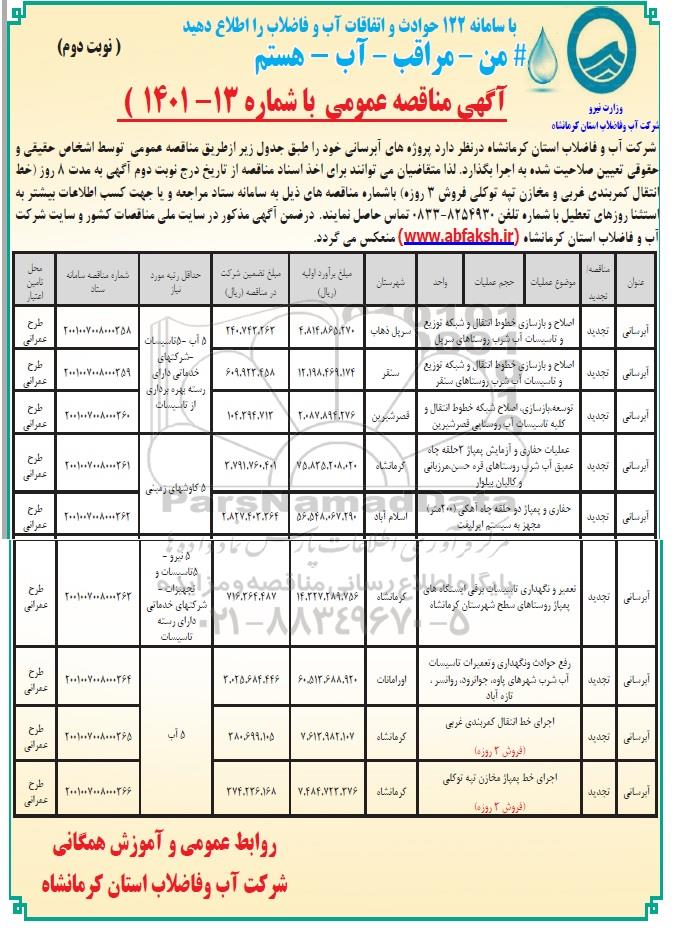 با سامانه ۱۲۲ حوادث و اتفاقات آب و فاضلاب را اطلاع دهید
( نوبت دوم)
# من - مراقب - آب - هستم
وزارت نیرو
شرکت آب وفاضلاب استان کرمانشاه
آگهی مناقصه عمومی با شماره ۱۳- ۱۴۰۱ )
شرکت آب و فاضلاب استان کرمانشاه درنظر دارد پروژه های آبرسانی خود را طبق جدول زیر ازطریق مناقصه عمومی توسط اشخاص حقیقی و
حقوقی تعیین صلاحیت شده به اجرا بگذارد. لذا متقاضیان می توانند برای اخذ اسناد مناقصه از تاریخ درج نوبت دوم آگهی به مدت ۸ روز (خط
انتقال کمربندی غربی و مخازن تپه توکلی فروش ۳ روزه) باشماره مناقصه های ذیل به سامانه ستاد مراجعه و یا جهت کسب اطلاعات بیشتر به
استثنا روزهای تعطیل با شماره تلفن ۸۲۵۴۹۳۰-۰۸۳۳ تماس حاصل نمایند. درضمن آگهی مذکور در سایت ملی مناقصات کشور و سایت شرکت
آب و فاضلاب استان کرمانشاه (www.abfaksh.ir) منعکس می گردد.
عنوان
مناقصه/
تجدید
موضوع عملیات
حجم عملیات
واحد
شهرستان
مبلغ برآورد اولیه
(ریال)
مبلغ تضمین شرکت
در مناقصه (ریال)
حداقل رتبه مورد
نیاز
شماره مناقصه سامانه
ستاد
محل
تامین
اعتبار
آبرسانی تجدید
اصلاح و بازسازی خطوط انتقال و شبکه توزیع
و تاسیسات آب شرب روستاهای سرپل
سرپل ذهاب ۴.۸۱۴.۸۶۵.۲۷۰ ۲۴۰.۷۴۳.۲۶۳
۵ آب -۵تاسیسات
-شرکتهای
خدماتی دارای
رسته بهره برداری
از تاسیسات
۲۰۰۱۰۰۷۰۰۸۰۰۰۳۵۸
طرح
عمرانی
آبرسانی تجدید
اصلاح و بازسازی خطوط انتقال و شبکه توزیع
و تاسیسات آب شرب روستاهای سنقر
سنقر ۱۲.۱۹۸.۴۶۹.۱۷۴ ۶۰۹.۹۲۳.۴۵۸ ۲۰۰۱۰۰۷۰۰۸۰۰۰۳۵۹
طرح
عمرانی
آبرسانی تجدید
توسعه،بازسازی، اصلاح شبکه خطوط انتقال و
کلیه تاسیسات آب روستایی قصرشیرین
قصرشیرین ۲.۰۸۷.۸۹۴.۲۷۶ ۱۰۴.۳۹۴.۷۱۳ ۲۰۰۱۰۰۷۰۰۸۰۰۰۳۶۰
طرح
عمرانی
آبرسانی تجدید
عملیات حفاری و آزمایش پمپاژ ۳حلقه چاه
عمیق آب شرب روستاهای قره حسن،مرزبانی
و کالیان بیلوار
کرمانشاه ۷۵.۸۳۵.۲۰۸.۰۲۰ ۳.۷۹۱.۷۶۰.۴۰۱
۵ کاوشهای زمینی
۲۰۰۱۰۰۷۰۰۸۰۰۰۳۶۱
طرح
عمرانی
آبرسانی تجدید
حفاری و پمپاژ دو حلقه چاه آهکی (۲۰۰متر)
مجهز به سیستم ایرلیفت
اسلام آباد ۵۶.۵۴۸.۰۶۷.۲۹۰ ۲.۸۲۷.۴۰۳.۳۶۴ ۲۰۰۱۰۰۷۰۰۸۰۰۰۳۶۲
طرح
عمرانی
ParsNamadData
مرکز فرآوری اطلاعات پارس نماد داده ها
پایگاه اطلاع رسانی مناقصه و مزایده
۰۲۱-۸۸۳۴۹۶۷۰-۵
آبرسانی تجدید
تعمیر و نگهداری تاسیسات برقی ایستگاه های
پمپاژ روستاهای سطح شهرستان کرمانشاه
کرمانشاه ۱۴.۳۲۷.۲۸۹.۷۵۶ ۷۱۶.۳۶۴.۴۸۷
۵ نیرو -
۵تاسیسات و
تجهیزات -
شرکتهای خدماتی
دارای رسته
تاسیسات
۲۰۰۱۰۰۷۰۰۸۰۰۰۳۶۳
طرح
عمرانی
آبرسانی تجدید
رفع حوادث ونگهداری وتعمیرات تاسیسات
آب شرب شهرهای پاوه، جوانرود، روانسر ،
تازه آباد
اورامانات ۶۰.۵۱۳.۶۸۸.۹۲۰ ۳.۰۲۵.۶۸۴.۴۴۶
۵ آب
۲۰۰۱۰۰۷۰۰۸۰۰۰۳۶۴
طرح
عمرانی
آبرسانی تجدید
اجرای خط انتقال کمربندی غربی
(فروش ۳ روزه)
کرمانشاه ۷.۶۱۳.۹۸۲.۱۰۷ ۳۸۰.۶۹۹.۱۰۵ ۲۰۰۱۰۰۷۰۰۸۰۰۰۳۶۵
طرح
عمرانی
آبرسانی تجدید
اجرای خط پمپاژ مخازن تپه توکلی
(فروش ۳ روزه)
کرمانشاه ۷.۴۸۴.۷۲۳.۳۷۶ ۳۷۴.۲۳۶.۱۶۸ ۲۰۰۱۰۰۷۰۰۸۰۰۰۳۶۶
طرح
عمرانی
روابط عمومی و آموزش همگانی
شرکت آب وفاضلاب استان کرمانشاه